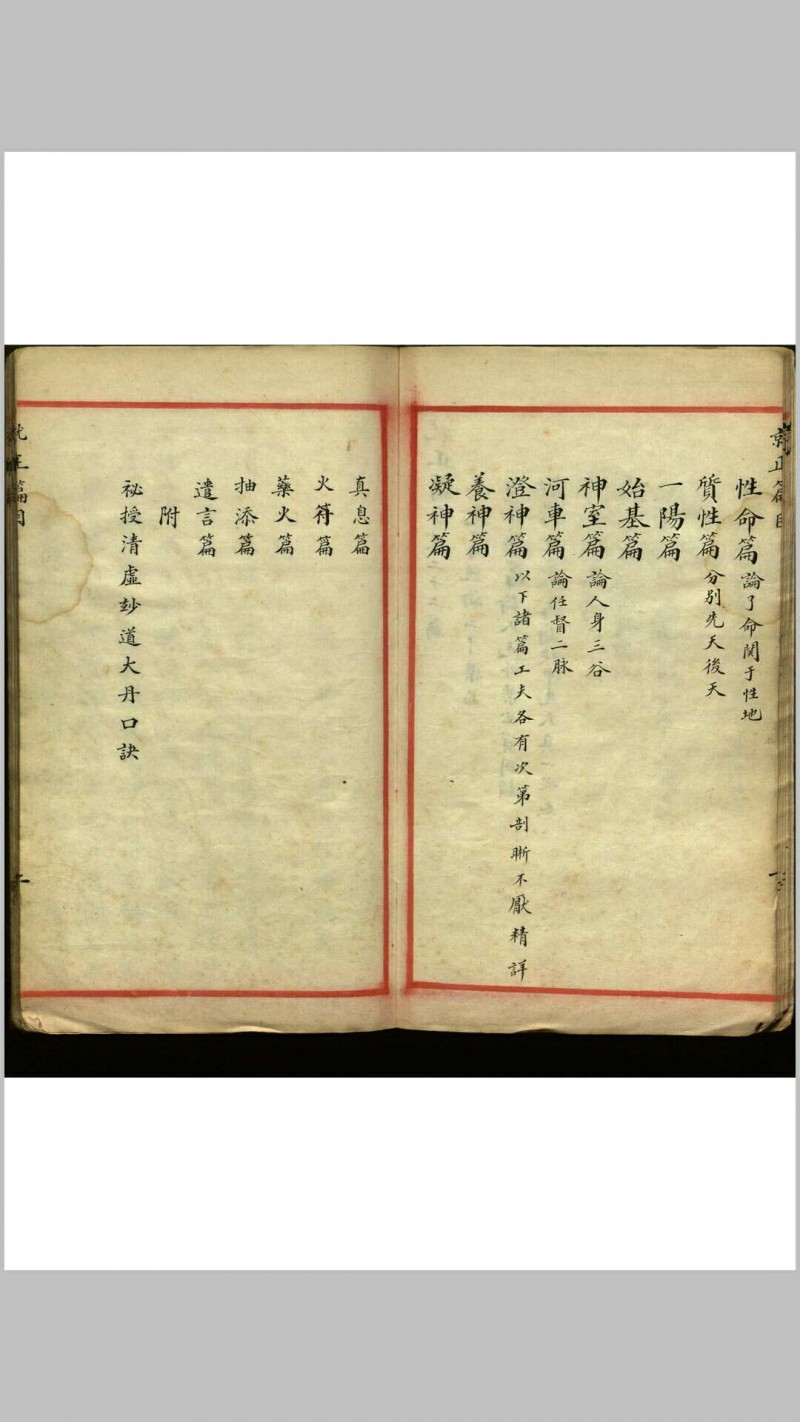 就正篇目
性命篇 論了命関于性地
質性篇 分別先天後天
一陽篇
始基篇
神室篇 論人身三谷
河車篇 論任督二脉
澄神篇 以下諸篇工夫各有次第剖晰不厭精詳
養神篇
凝神篇
真息篇
火符篇
藥火篇
抽添篇
遺言篇
附
祕授清虛玅道大丹口訣
就正篇目